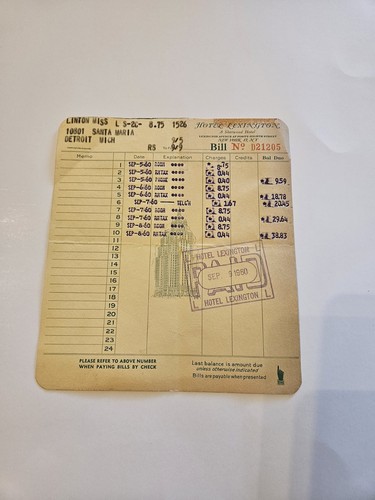 LINTON MISS L S-2C- 8.75 1526
10801 SANTA MARIA
DETROIT MICH
RS 9/9
HOTEL LEXINGTON
NEW YORK, N.Y.
Bill No 021205
Memo Date Explanation Charges Credits Bal Due
1 SEP-5-60 ROOM 8.75
2 SEP-5-60 RMTAX 0.44
3 SEP-5-60 PHONE 0.40 9.59
4 SEP-6-60 ROOM 8.75
5 SEP-6-60 RMTAX 0.44 18.78
6 SEP-7-60 TEL'M 1.67 20.45
7 SEP-7-60 ROOM 8.75
8 SEP-7-60 RMTAX 0.44 29.64
9 SEP-8-60 ROOM 8.75
10 SEP-8-60 RMTAX 0.44 38.83
11
12
13
14
15
16
17
18
19
20
21
22
23
24
HOTEL LEXINGTON
PAID
SEP 9 1960
HOTEL LEXINGTON
PLEASE REFER TO ABOVE NUMBER
WHEN PAYING BILLS BY CHECK
Last balance is amount due
unless otherwise indicated
Bills are payable when presented